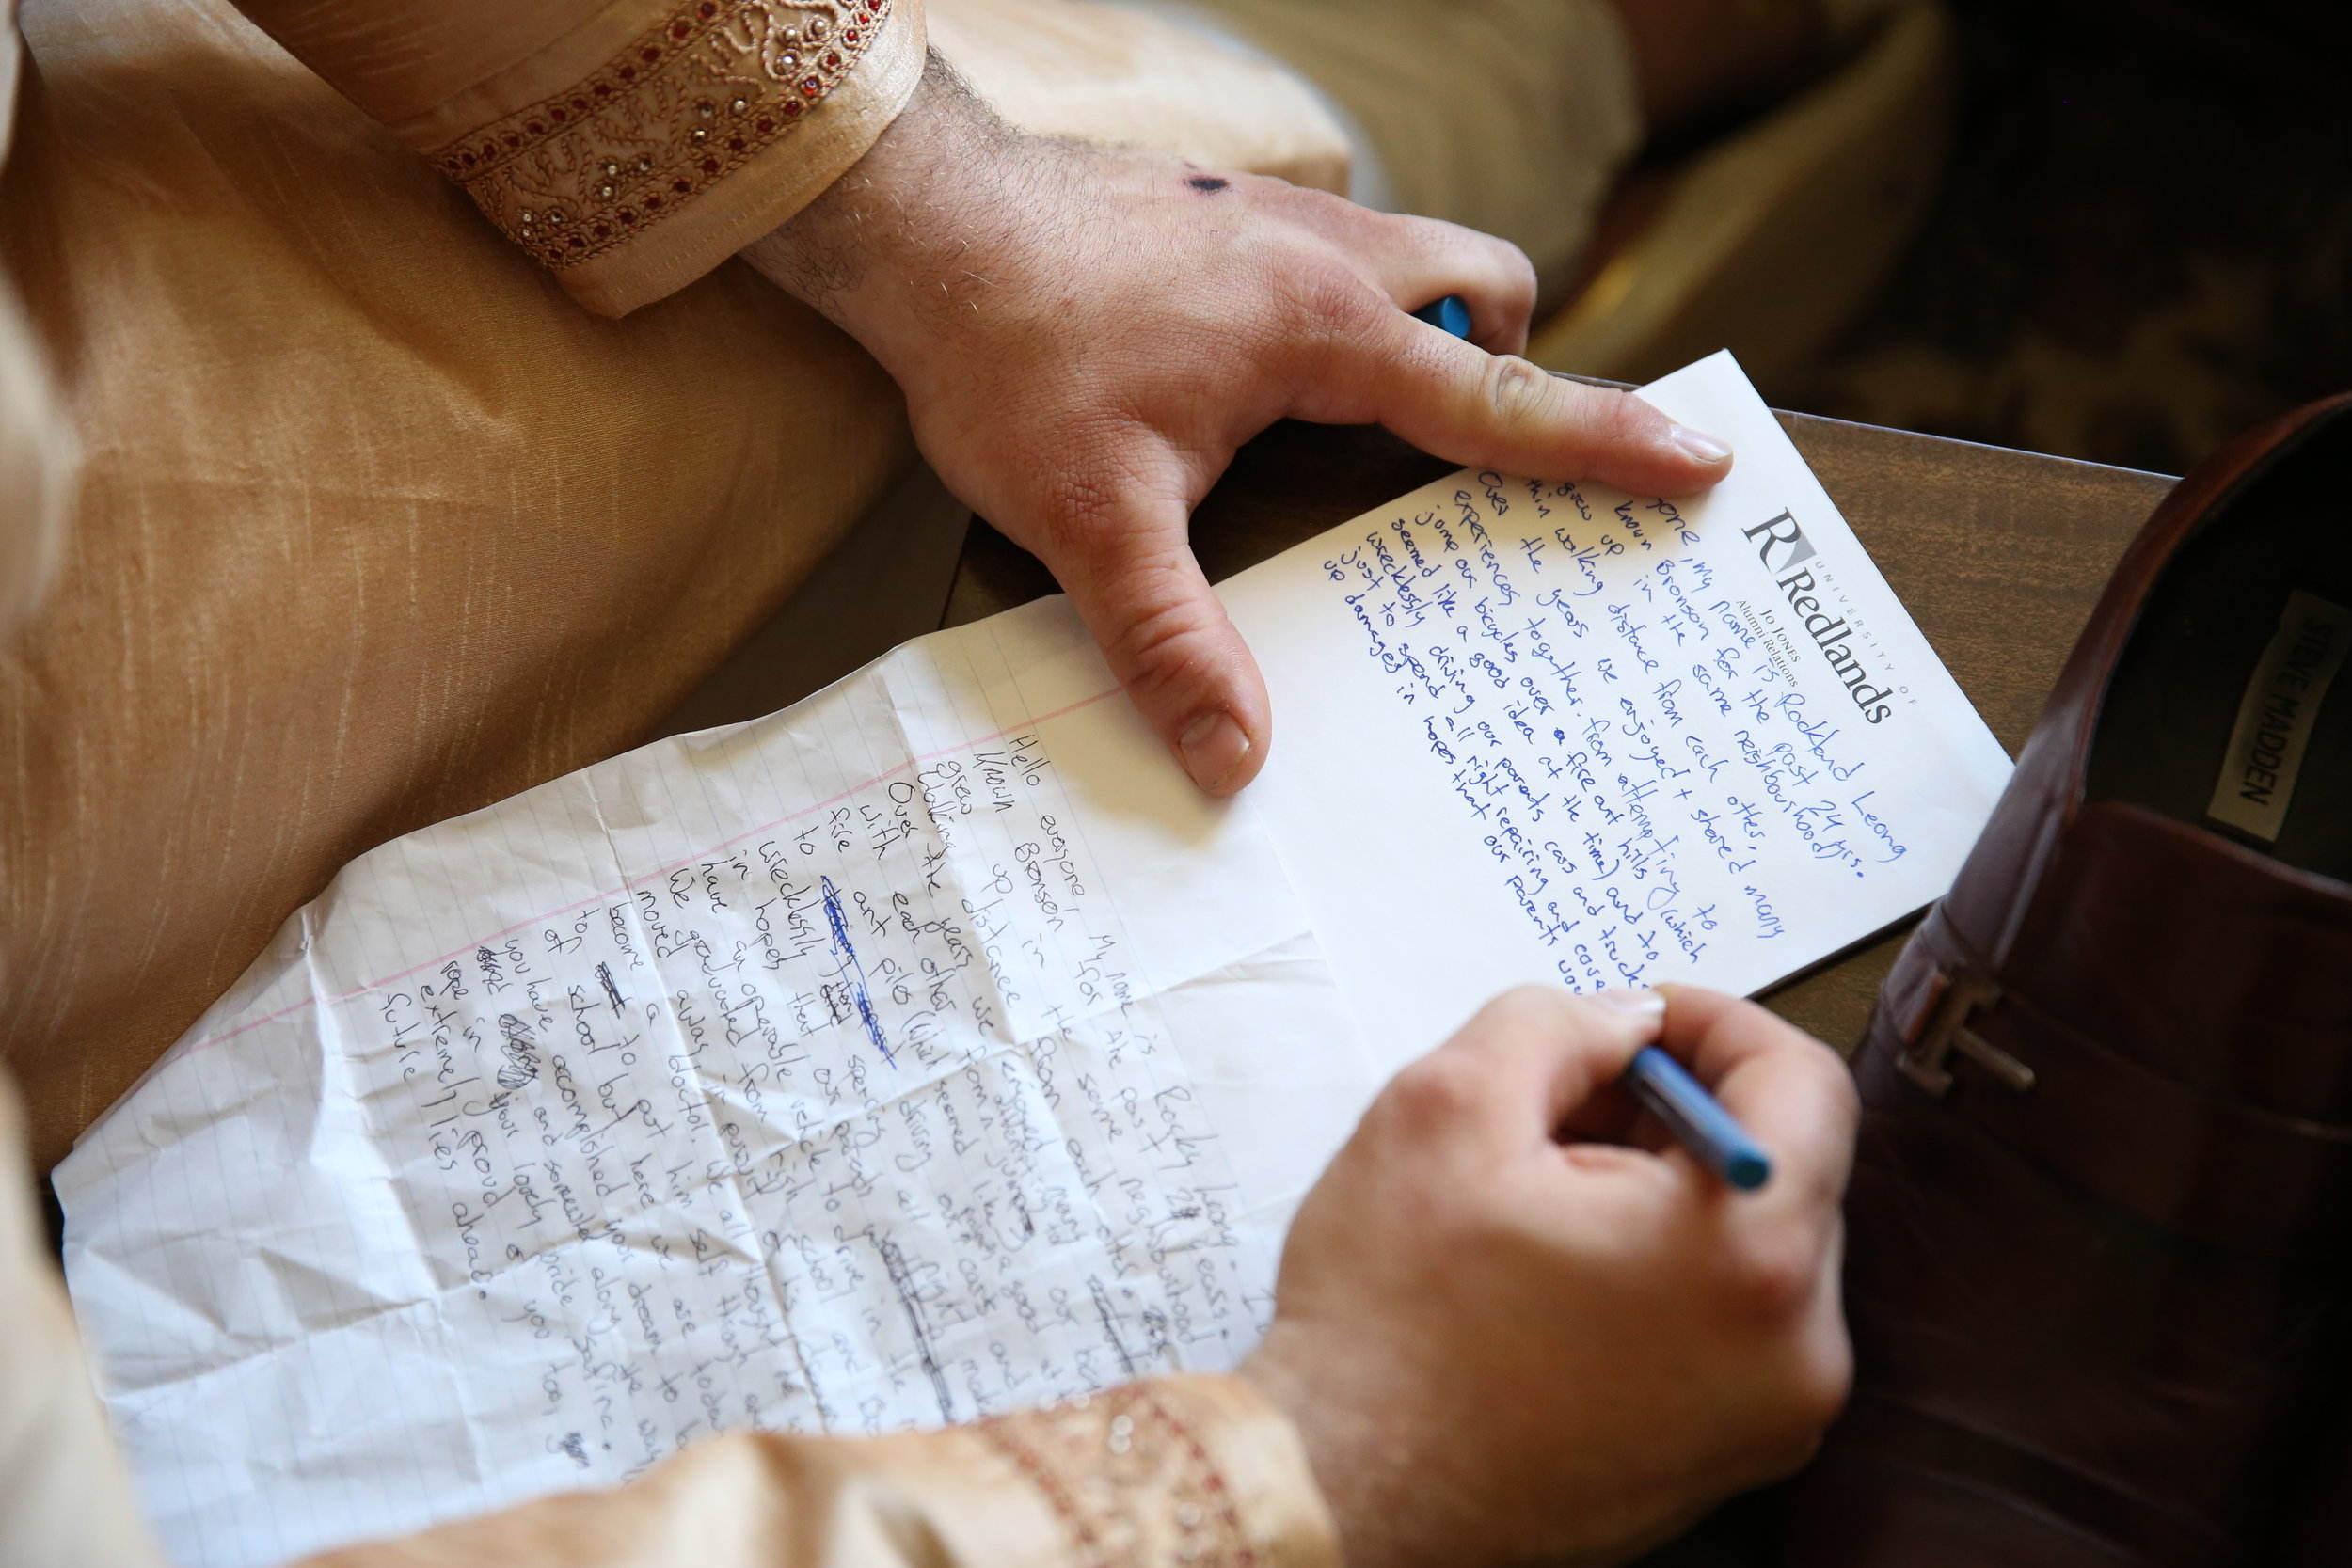 UNIVERSITY OF
R Redlands
Jo Jones
Alumni Relations
yone, my name is Rockland Leong
known Bronson for the past 24 yrs.
grew up in the same neighbourhood,
thin walking distance from each other.
Over the years we enjoyed + shared many
experiences together. from attempting to
jump our bicycles over a fire ant hills (which
seemed like a good idea at the time) and to
wrecklessly driving our parents cars and truck
just to spend all night repairing and
up damages in hopes that our parents
Hello everyone, My name is Rocky Leong. I
known Bronson for the past 24 years.
grew up in the same neighbourhood
Walking distance from each other.
Over the years we enjoyed many
with each other from attempting
fire ant piles (which seemed like a good
to driving our cars and
wrecklessly then spending all night
in hopes that our parents
have an operable vehicle to drive in the
We graduated from high school and
moved away in pursuit of his
become a doctor. We all
to to put him self through
of school but here we are today
you have accomplished your dream to
and somewhere along the way
rope in your lovely bride Safina.
extremely proud of you too,
future lies ahead.
STEVE MADDEN